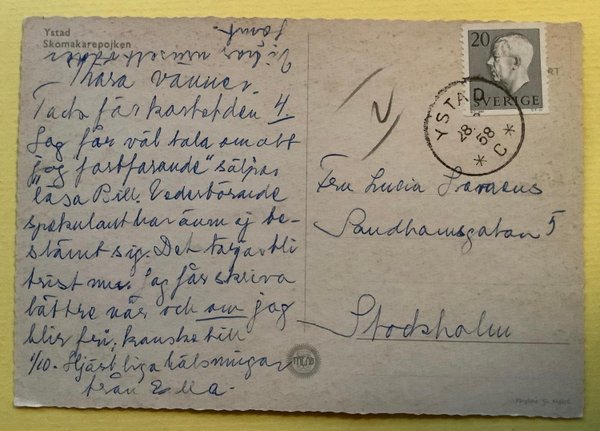 Ystad
Skomakarepojken
Kära vänner,
Tack för kortet den 4
Jag får väl tala om att
"jag fortfarande" säljer
Bill. Vederbörande
spekulant har ännu ej be-
stämt sig. Det
trist men Jag får skriva
bättre när och om jag
blir fri, kanske till
1/10. Hjärtliga hälsningar
från Ella.
20
SVERIGE
YSTAD
28
58
* C *
Fru Lucia
Sandhamsgatan 5
Stockholm